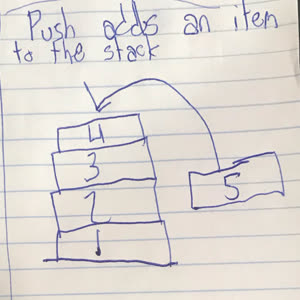 Push adds an item
to the stack
4
3
2
5
1